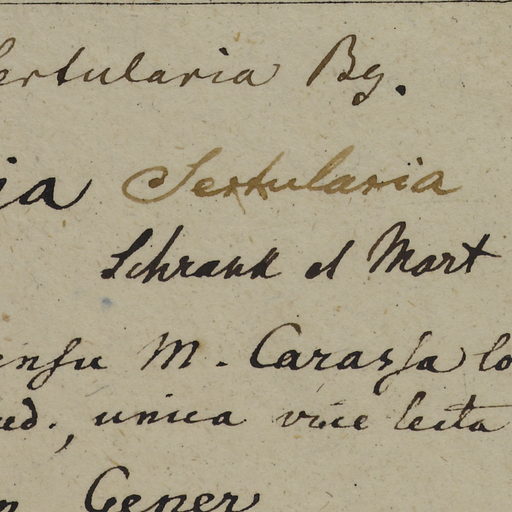 Sertularia Bg.
ia Sertularia
Schrank et Mart
ensu M. Carassa lo
ud., unica vice lecta
Gener